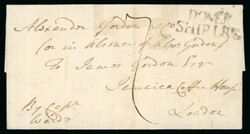 DOVER
SHIP LRE
Alexander Gordon Esqr
(or in absence of Alexr Gordon)
To James Gordon Esqr
Jamaica Coffee House
London
By Capt
7